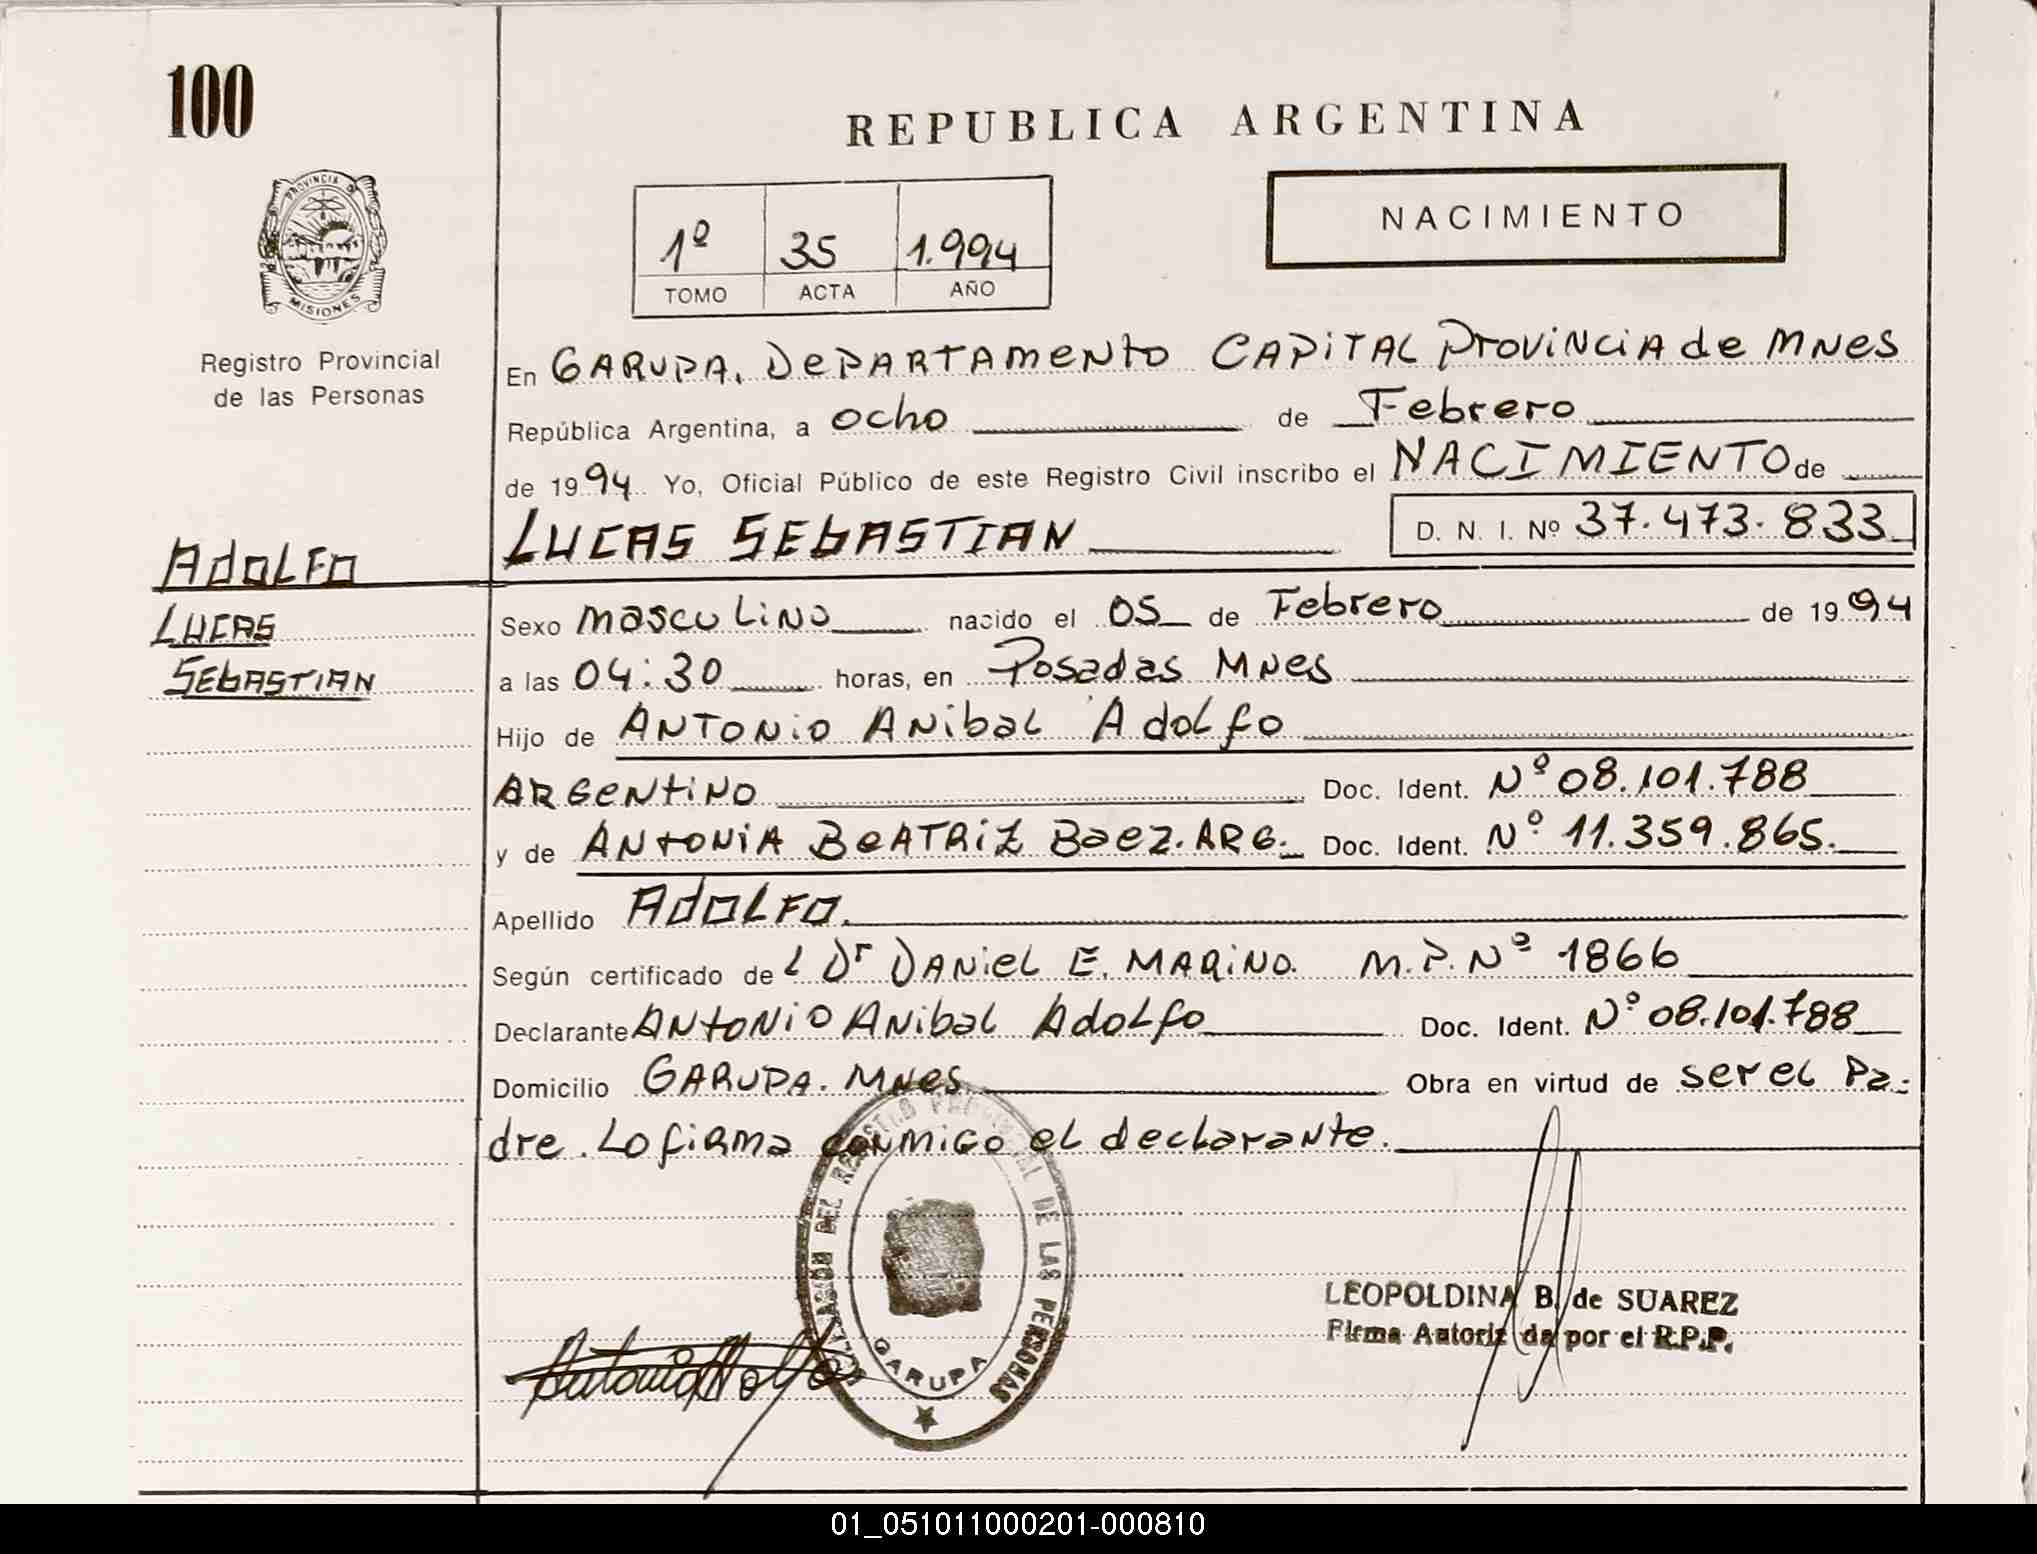 100
REPUBLICA ARGENTINA
PROVINCIA DE MISIONES
NACIMIENTO
1º 35 1.994
TOMO ACTA AÑO
Registro Provincial
de las Personas
En GARUPA. DEPARTAMENTO CAPITAL PROVINCIA de MNES
República Argentina, a ocho de Febrero
de 1994 Yo, Oficial Público de este Registro Civil inscribo el NACIMIENTO de
LUCAS SEBASTIAN D. N. I. Nº 37.473.833
ADOLFO
LUCAS
SEBASTIAN
Sexo masculino nacido el 05 de Febrero de 1994
a las 04:30 horas, en Posadas MNES
Hijo de ANTONIO ANIBAL ADOLFO
ARGENTINO Doc. Ident. Nº 08.101.788
y de ANTONIA BEATRIZ BAEZ. ARG. Doc. Ident. Nº 11.359.865.
Apellido ADOLFO.
Según certificado del Dr DANIEL E. MARINO. M.P. Nº 1866
Declarante ANTONIO ANIBAL ADOLFO Doc. Ident. Nº 08.101.788
Domicilio GARUPA. MNES Obra en virtud de ser el Pa-
dre. Lo firma conmigo el declarante.
DELEGACIÓN DEL REGISTRO PROVINCIAL DE LAS PERSONAS
GARUPA
LEOPOLDINA B. de SUAREZ
Firma Autorizada por el R.P.P.
01_051011000201-000810